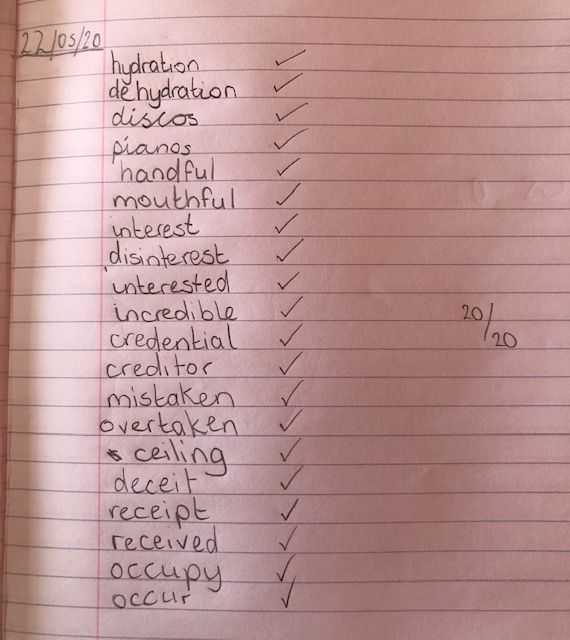 22/05/20
hydration ✓
dehydration ✓
discos ✓
pianos ✓
handful ✓
mouthful ✓
interest ✓
disinterest ✓
interested ✓
incredible ✓
20/20
credential ✓
creditor ✓
mistaken ✓
overtaken ✓
ceiling ✓
deceit ✓
receipt ✓
received ✓
occupy ✓
occur ✓